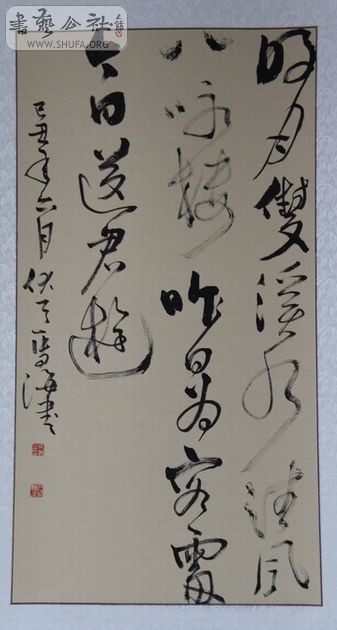 書藝公社
WWW.SHUFA.ORG
明月雙溪水清風
八咏樓昨日為客處
今日送君遊
己丑年六月伏天海書